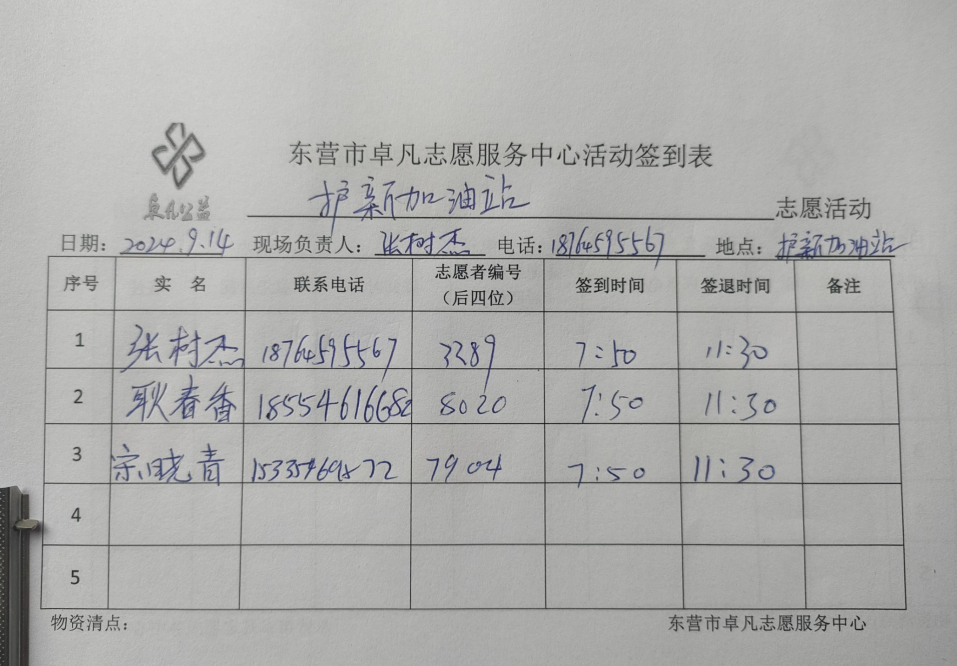 东营市卓凡志愿服务中心活动签到表
卓凡公益
护新加油站 志愿活动
日期：2024.9.14 现场负责人：张树杰 电话：18764595567 地点：护新加油站
序号 实 名 联系电话 志愿者编号（后四位） 签到时间 签退时间 备注
1 张树杰 18764595567 3289 7:50 11:30
2 耿春香 18554616682 8020 7:50 11:30
3 宗晓青 7904 7:50 11:30
4
5
物资清点： 东营市卓凡志愿服务中心